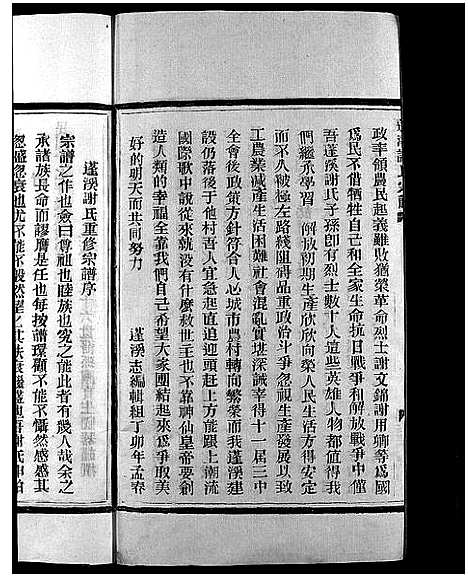 政率領農民起義雖敗猶榮革命烈士謝文錦謝用卿等爲國
爲民不惜犧牲自己和全家生命抗日戰爭和解放戰爭中僅
吾蓬溪謝氏子孫即有烈士數十人這些英雄人物都值得我
們繼承學習 解放初期生產欣欣向榮人民生活方得安定
而不久被極左路綫阻碍品重政治斗爭忽視生產發展以致
工農業減產生活困難社會混亂實堪深誡幸得十一屆三中
全會後政策方針符合人心城市農村轉向繁榮而我蓬溪建
設仍落後于他村吾人宜急起直追迎頭赶上方能跟上潮流
國際歌中說從來就没有什麽救世主也不靠神仙皇帝要創
造人類的幸福全靠我們自己希望大家團結起來爲爭取美
好的明天而共同努力
蓬溪志編輯組丁卯年孟春
蓬溪謝氏重修宗譜序
宗譜之作也僉曰尊祖也睦族也究之能此者有幾人哉余之
承諸族長命而謬膺是任也每按譜環顧不能不慨然感其